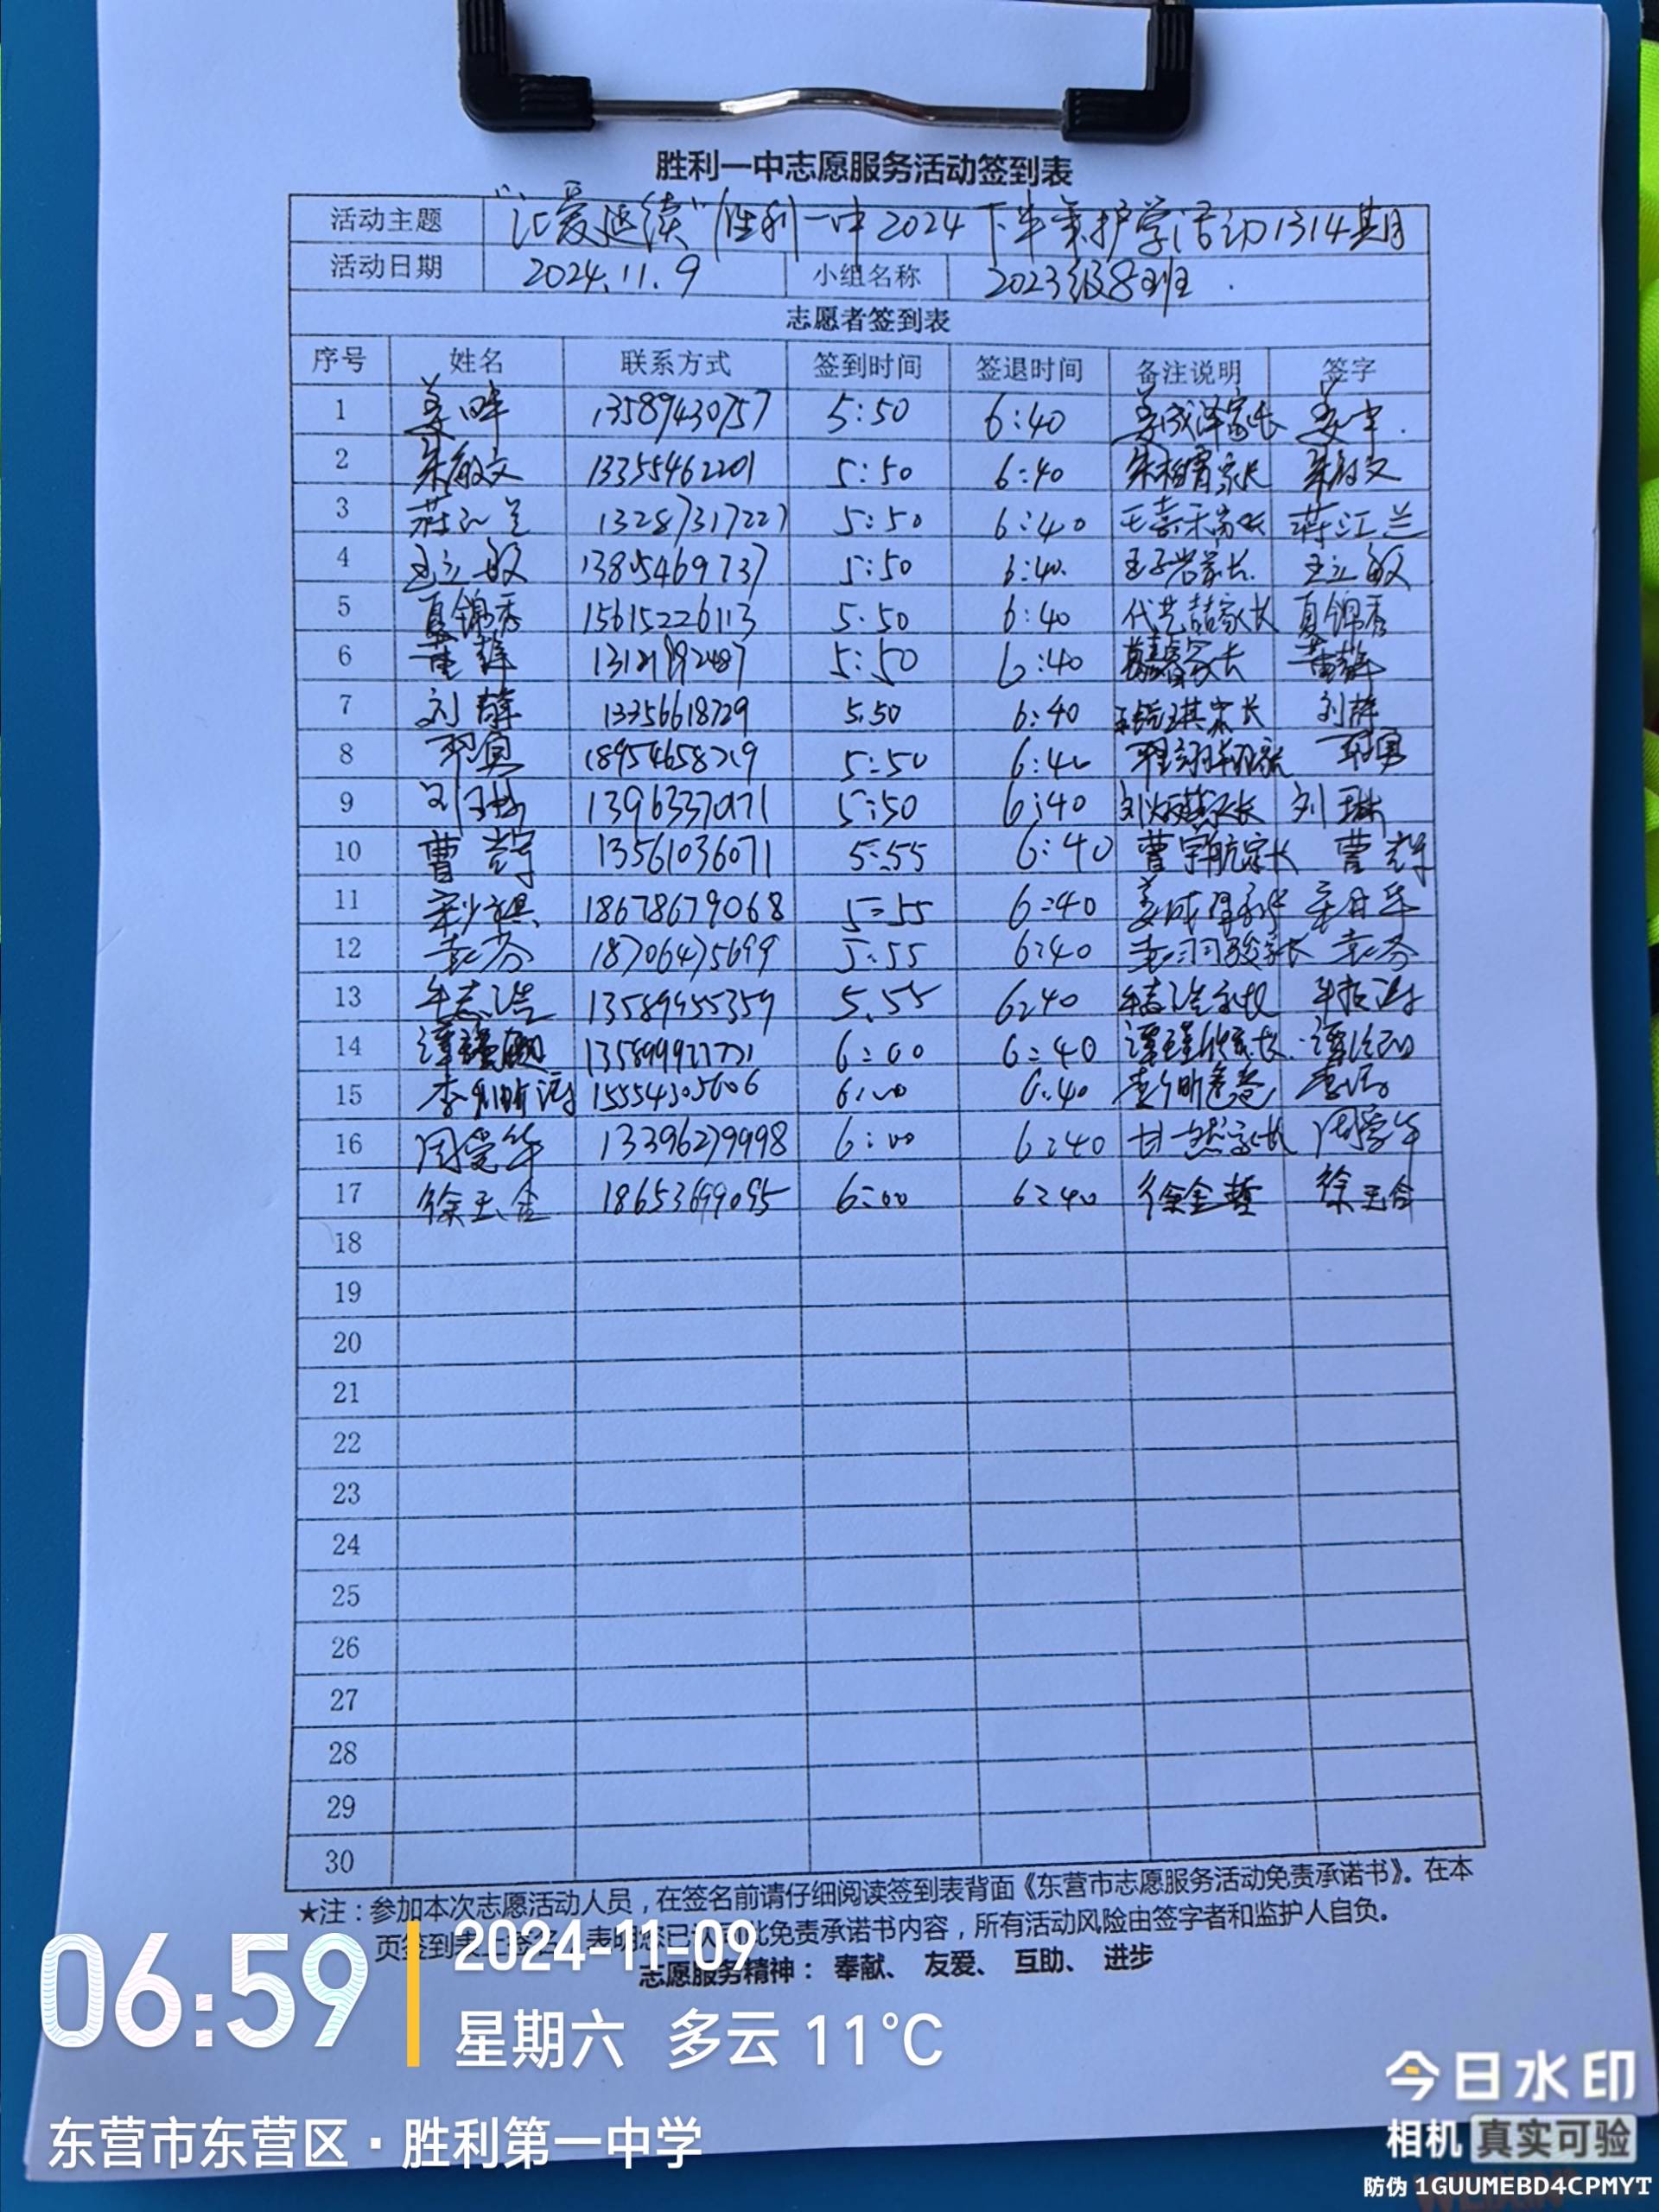 胜利一中志愿服务活动签到表
活动主题 "让爱延续"胜利一中2024下半年护学活动1314期
活动日期 2024.11.9 小组名称 2023级8班
志愿者签到表
序号 姓名 联系方式 签到时间 签退时间 备注说明 签字
1 13589430757 5:50 6:40 姜成泽家长
2 朱敏文 13355462201 5:50 6:40 家长 朱敏文
3 蒋江兰 13287317227 5:50 6:40 家长 蒋江兰
4 王立敏 1385469737 5:50 6:40 家长 王立敏
5 夏锦秀 15615226113 5:50 6:40 代艺喆家长 夏锦秀
6 5:50 6:40 家长
7 刘薛 13356618729 5:50 6:40 家长 刘薛
8 5:50 6:40
9 刘琳 5:50 6:40 家长 刘琳
10 曹辉 13561036071 5:55 6:40 曹宇航家长 曹辉
11 18678679068 5:55 6:40
12 袁芬 18706475699 5:55 6:40 家长 袁芬
13 13589455359 5:55 6:40 家长
14 6:00 6:40 家长
15 15554305606 6:00 6:40
16 周爱华 13396279998 6:00 6:40 甘一然家长 周爱华
17 徐玉合 18653699095 6:00 6:40 徐金哲 徐玉合
18
19
20
21
22
23
24
25
26
27
28
29
30
★注：参加本次志愿活动人员，在签名前请仔细阅读签到表背面《东营市志愿服务活动免责承诺书》。在本
页签到表上签名，表明您已认同此免责承诺书内容，所有活动风险由签字者和监护人自负。
志愿服务精神： 奉献、 友爱、 互助、 进步
06:59
2024-11-09
星期六 多云 11°C
东营市东营区·胜利第一中学
今日水印
相机 真实可验
防伪 1GUUMEBD4CPMYT